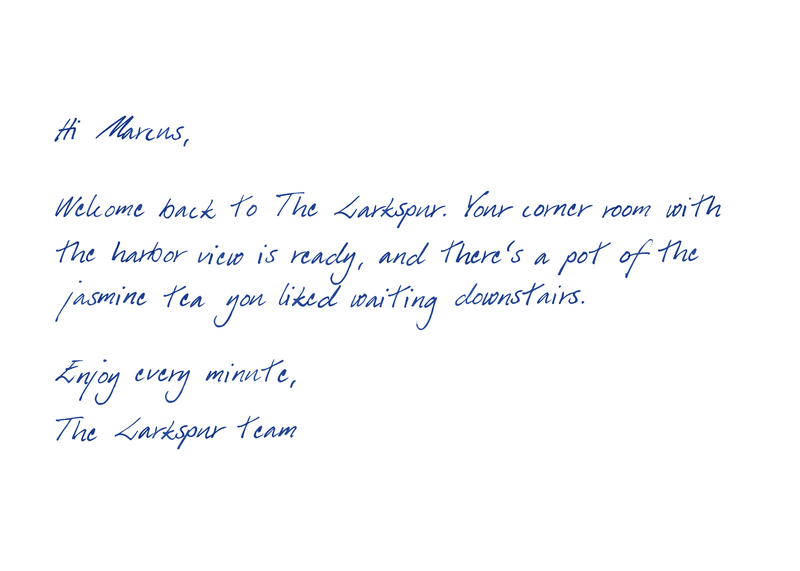 Hi Marcus,
Welcome back to The Larkspur. Your corner room with
the harbor view is ready, and there's a pot of the
jasmine tea you liked waiting downstairs.
Enjoy every minute,
The Larkspur team